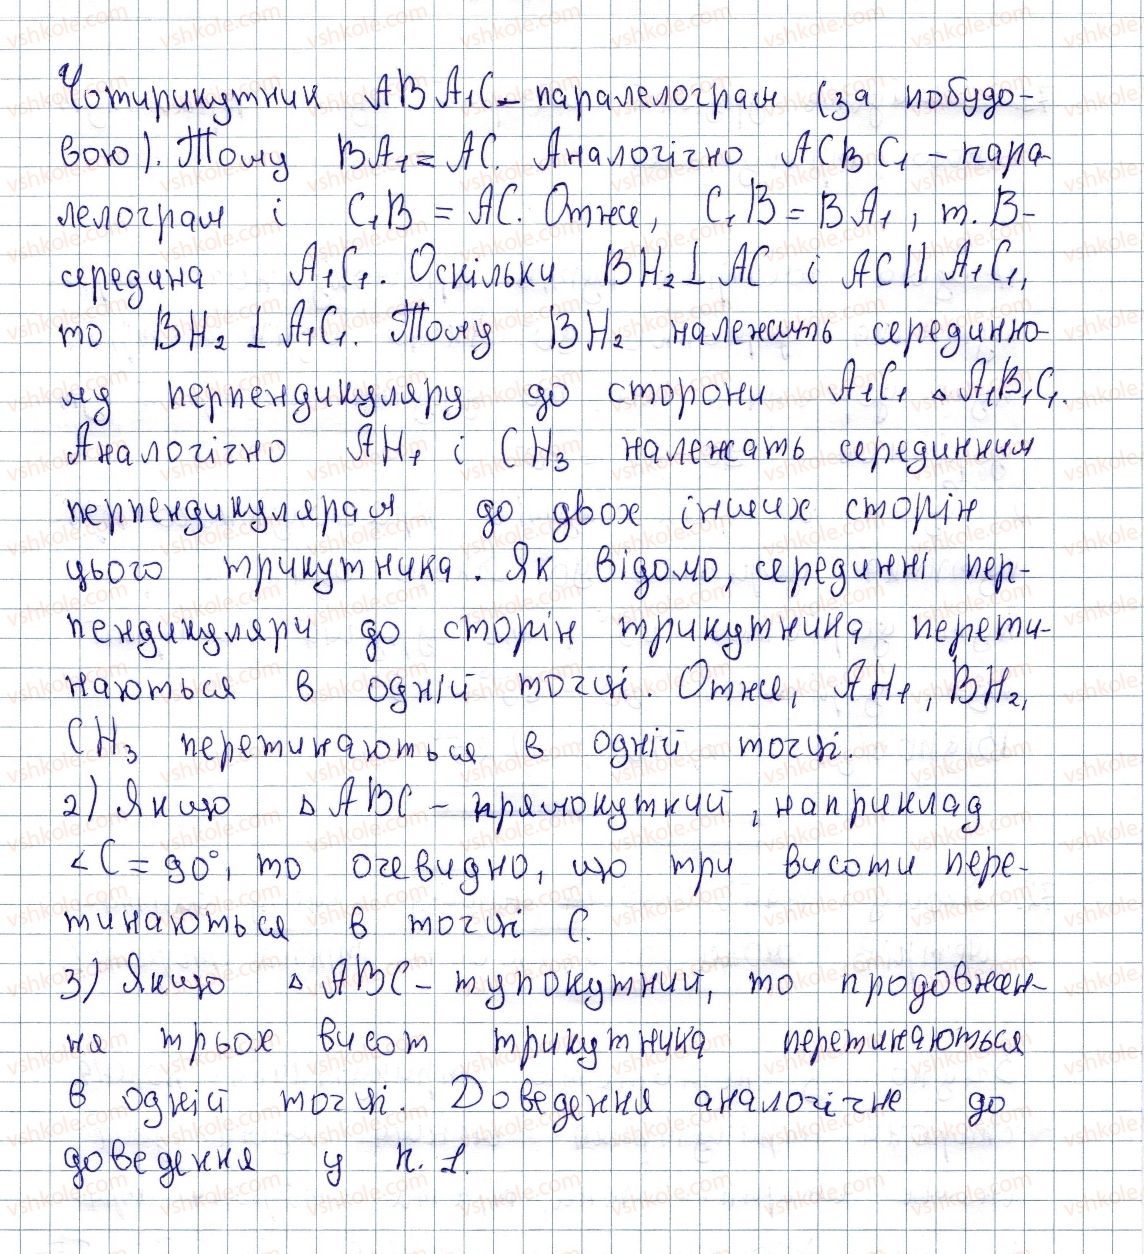 Чотирикутник ABA₁C - паралелограм (за побудо-
вою). Тому BA₁ = AC. Аналогічно ACBC₁ - пара-
лелограм і C₁B = AC. Отже, C₁B = BA₁, т. B -
середина A₁C₁. Оскільки BH₂ ⊥ AC і AC || A₁C₁,
то BH₂ ⊥ A₁C₁. Тому BH₂ належить серединно-
му перпендикуляру до сторони A₁C₁ △ A₁B₁C₁.
Аналогічно AH₁ і CH₃ належать серединним
перпендикулярам до двох інших сторін
цього трикутника. Як відомо, серединні пер-
пендикуляри до сторін трикутника перети-
наються в одній точці. Отже, AH₁, BH₂,
CH₃ перетинаються в одній точці.
2) Якщо △ ABC - прямокутний, наприклад
∠C = 90°, то очевидно, що три висоти пере-
тинаються в точці C.
3) Якщо △ ABC - тупокутний, то продовжен-
ня трьох висот трикутника перетинаються
в одній точці. Доведення аналогічне до
доведення у п. 1.